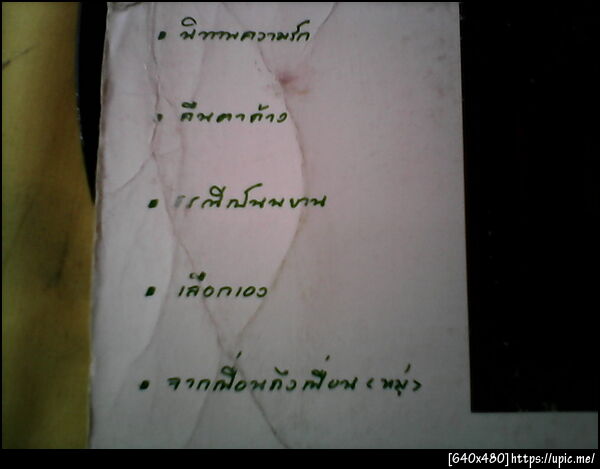 • นิทานความรัก
• คืนตาค้าง
• ธรณีเป็นพยาน
• เลือกเอง
• จากเพื่อนถึงเพื่อน <หมู่>
[640x480]https://upic.me/